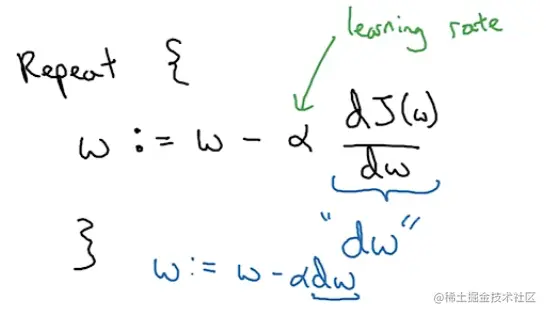 learning rate
Repeat {
w := w - α dJ(w)/dw
"dw"
}
w := w - αdw
@稀土掘金技术社区